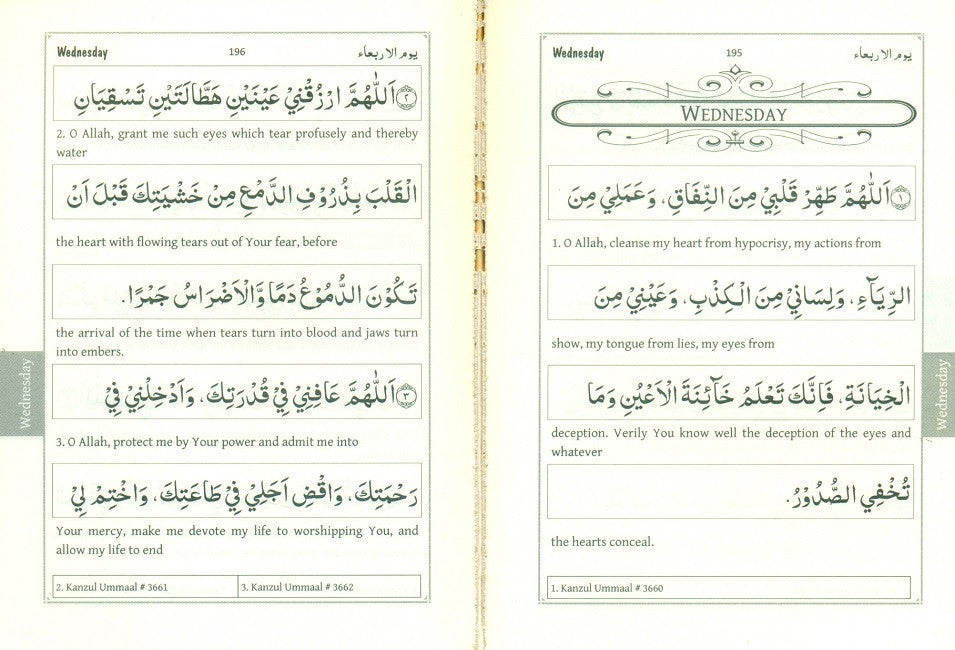 Wednesday 195 يوم الاربعاء
WEDNESDAY
۱ اَللّٰهُمَّ طَهِّرْ قَلْبِيْ مِنَ النِّفَاقِ، وَعَمَلِيْ مِنَ
1. O Allah, cleanse my heart from hypocrisy, my actions from
الرِّيَآءِ، وَلِسَانِيْ مِنَ الْكِذْبِ، وَعَيْنِيْ مِنَ
show, my tongue from lies, my eyes from
الْخِيَانَةِ، فَاِنَّكَ تَعْلَمُ خَآئِنَةَ الْاَعْيُنِ وَمَا
deception. Verily You know well the deception of the eyes and
whatever
تُخْفِي الصُّدُوْرُ.
the hearts conceal.
1. Kanzul Ummaal # 3660
Wednesday
Wednesday 196 يوم الاربعاء
۲ اَللّٰهُمَّ ارْزُقْنِيْ عَيْنَيْنِ هَطَّالَتَيْنِ تَسْقِيَانِ
2. O Allah, grant me such eyes which tear profusely and thereby
water
الْقَلْبَ بِذُرُوْفِ الدَّمْعِ مِنْ خَشْيَتِكَ قَبْلَ اَنْ
the heart with flowing tears out of Your fear, before
تَكُوْنَ الدُّمُوْعُ دَمًا وَّالْاَضْرَاسُ جَمْرًا.
the arrival of the time when tears turn into blood and jaws turn
into embers.
۳ اَللّٰهُمَّ عَافِنِيْ فِيْ قُدْرَتِكَ، وَاَدْخِلْنِيْ فِيْ
3. O Allah, protect me by Your power and admit me into
رَحْمَتِكَ، وَاقْضِ اَجَلِيْ فِيْ طَاعَتِكَ، وَاخْتِمْ لِيْ
Your mercy, make me devote my life to worshipping You, and
allow my life to end
2. Kanzul Ummaal # 3661 3. Kanzul Ummaal # 3662
Wednesday